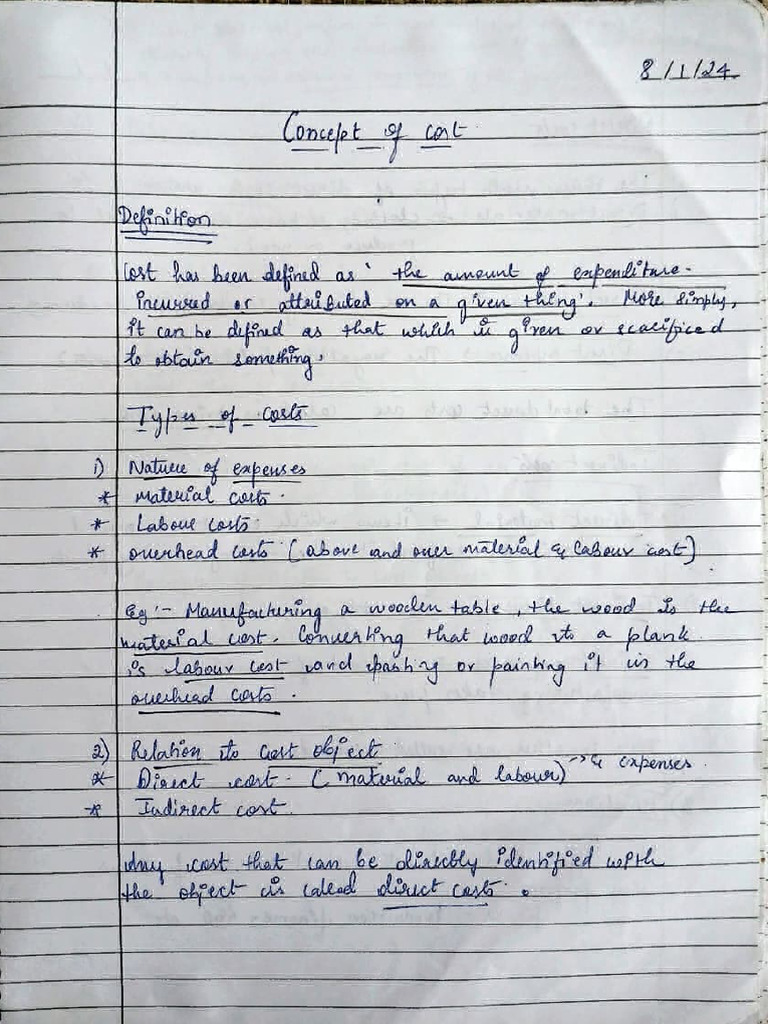 8/1/24
Concept of cost
Definition
Cost has been defined as ' the amount of expenditure
incurred or attributed on a given thing'. More simply,
it can be defined as that which is given or scacificed
to obtain something.
Types of costs
1) Nature of expenses
* Material costs.
* Labour costs
* overhead costs (above and over material & labour cost)
Eg:- Manufacturing a wooden table, the wood is the
material cost. Converting that wood to a plank
is labour cost and or painting it is the
overhead costs.
2) Relation to cost object
* Direct cost - (material and labour) → & expenses.
* Indirect cost.
Any cost that can be directly identified with
the object is called direct costs.